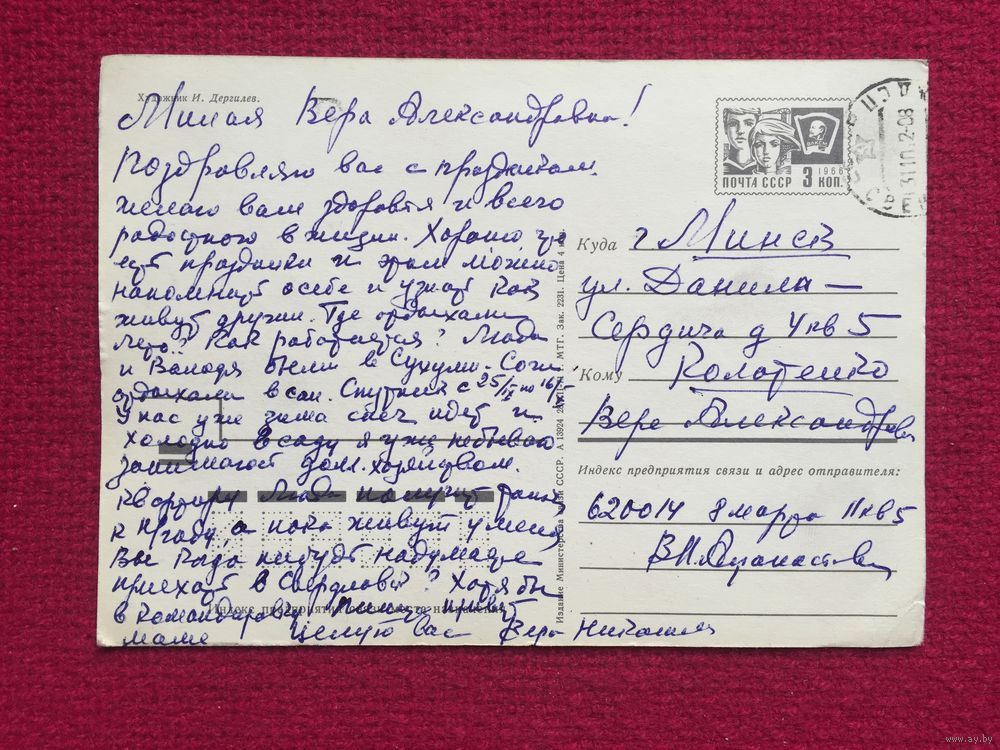 Художник И. Дергилев.
Милая Вера Александровна!
Поздравляю вас с праздником.
желаю вам здоровья и всего
радостного в жизни. Хорошо что
есть праздники и этим можно
напомнить о себе и узнать как
живут другие. Где отдыхали
лето? Как работается? Люда
и Володя были в Сухуми-Сочи
отдыхали в сан. Спутник с 25/IX по 16/X
У нас уже зима снег идет и
холодно В саду я уже не бываю
занимаюсь дом. хозяйством.
Квартиру Люда получит
к Н/году а пока живут у меня
Вы когда нибудь надумаете
приехать в Свердловск? Хотя бы
в командировку. привет
маме Целую вас Вера Николаев
Индекс предприятия связи места назначения
Издание Министерства связи СССР. А 13924 МТГ. Зак. 2231. Цена 4 коп.
ПОЧТА СССР 3 КОП.
1966
ВЛКСМ
31.10.72-08
Куда г Минск
ул. Данилы —
Сердича д 4 кв 5
Кому Колотенко
Вере Александровне
Индекс предприятия связи и адрес отправителя:
620014 8 марта 11 кв 5
www.ay.by